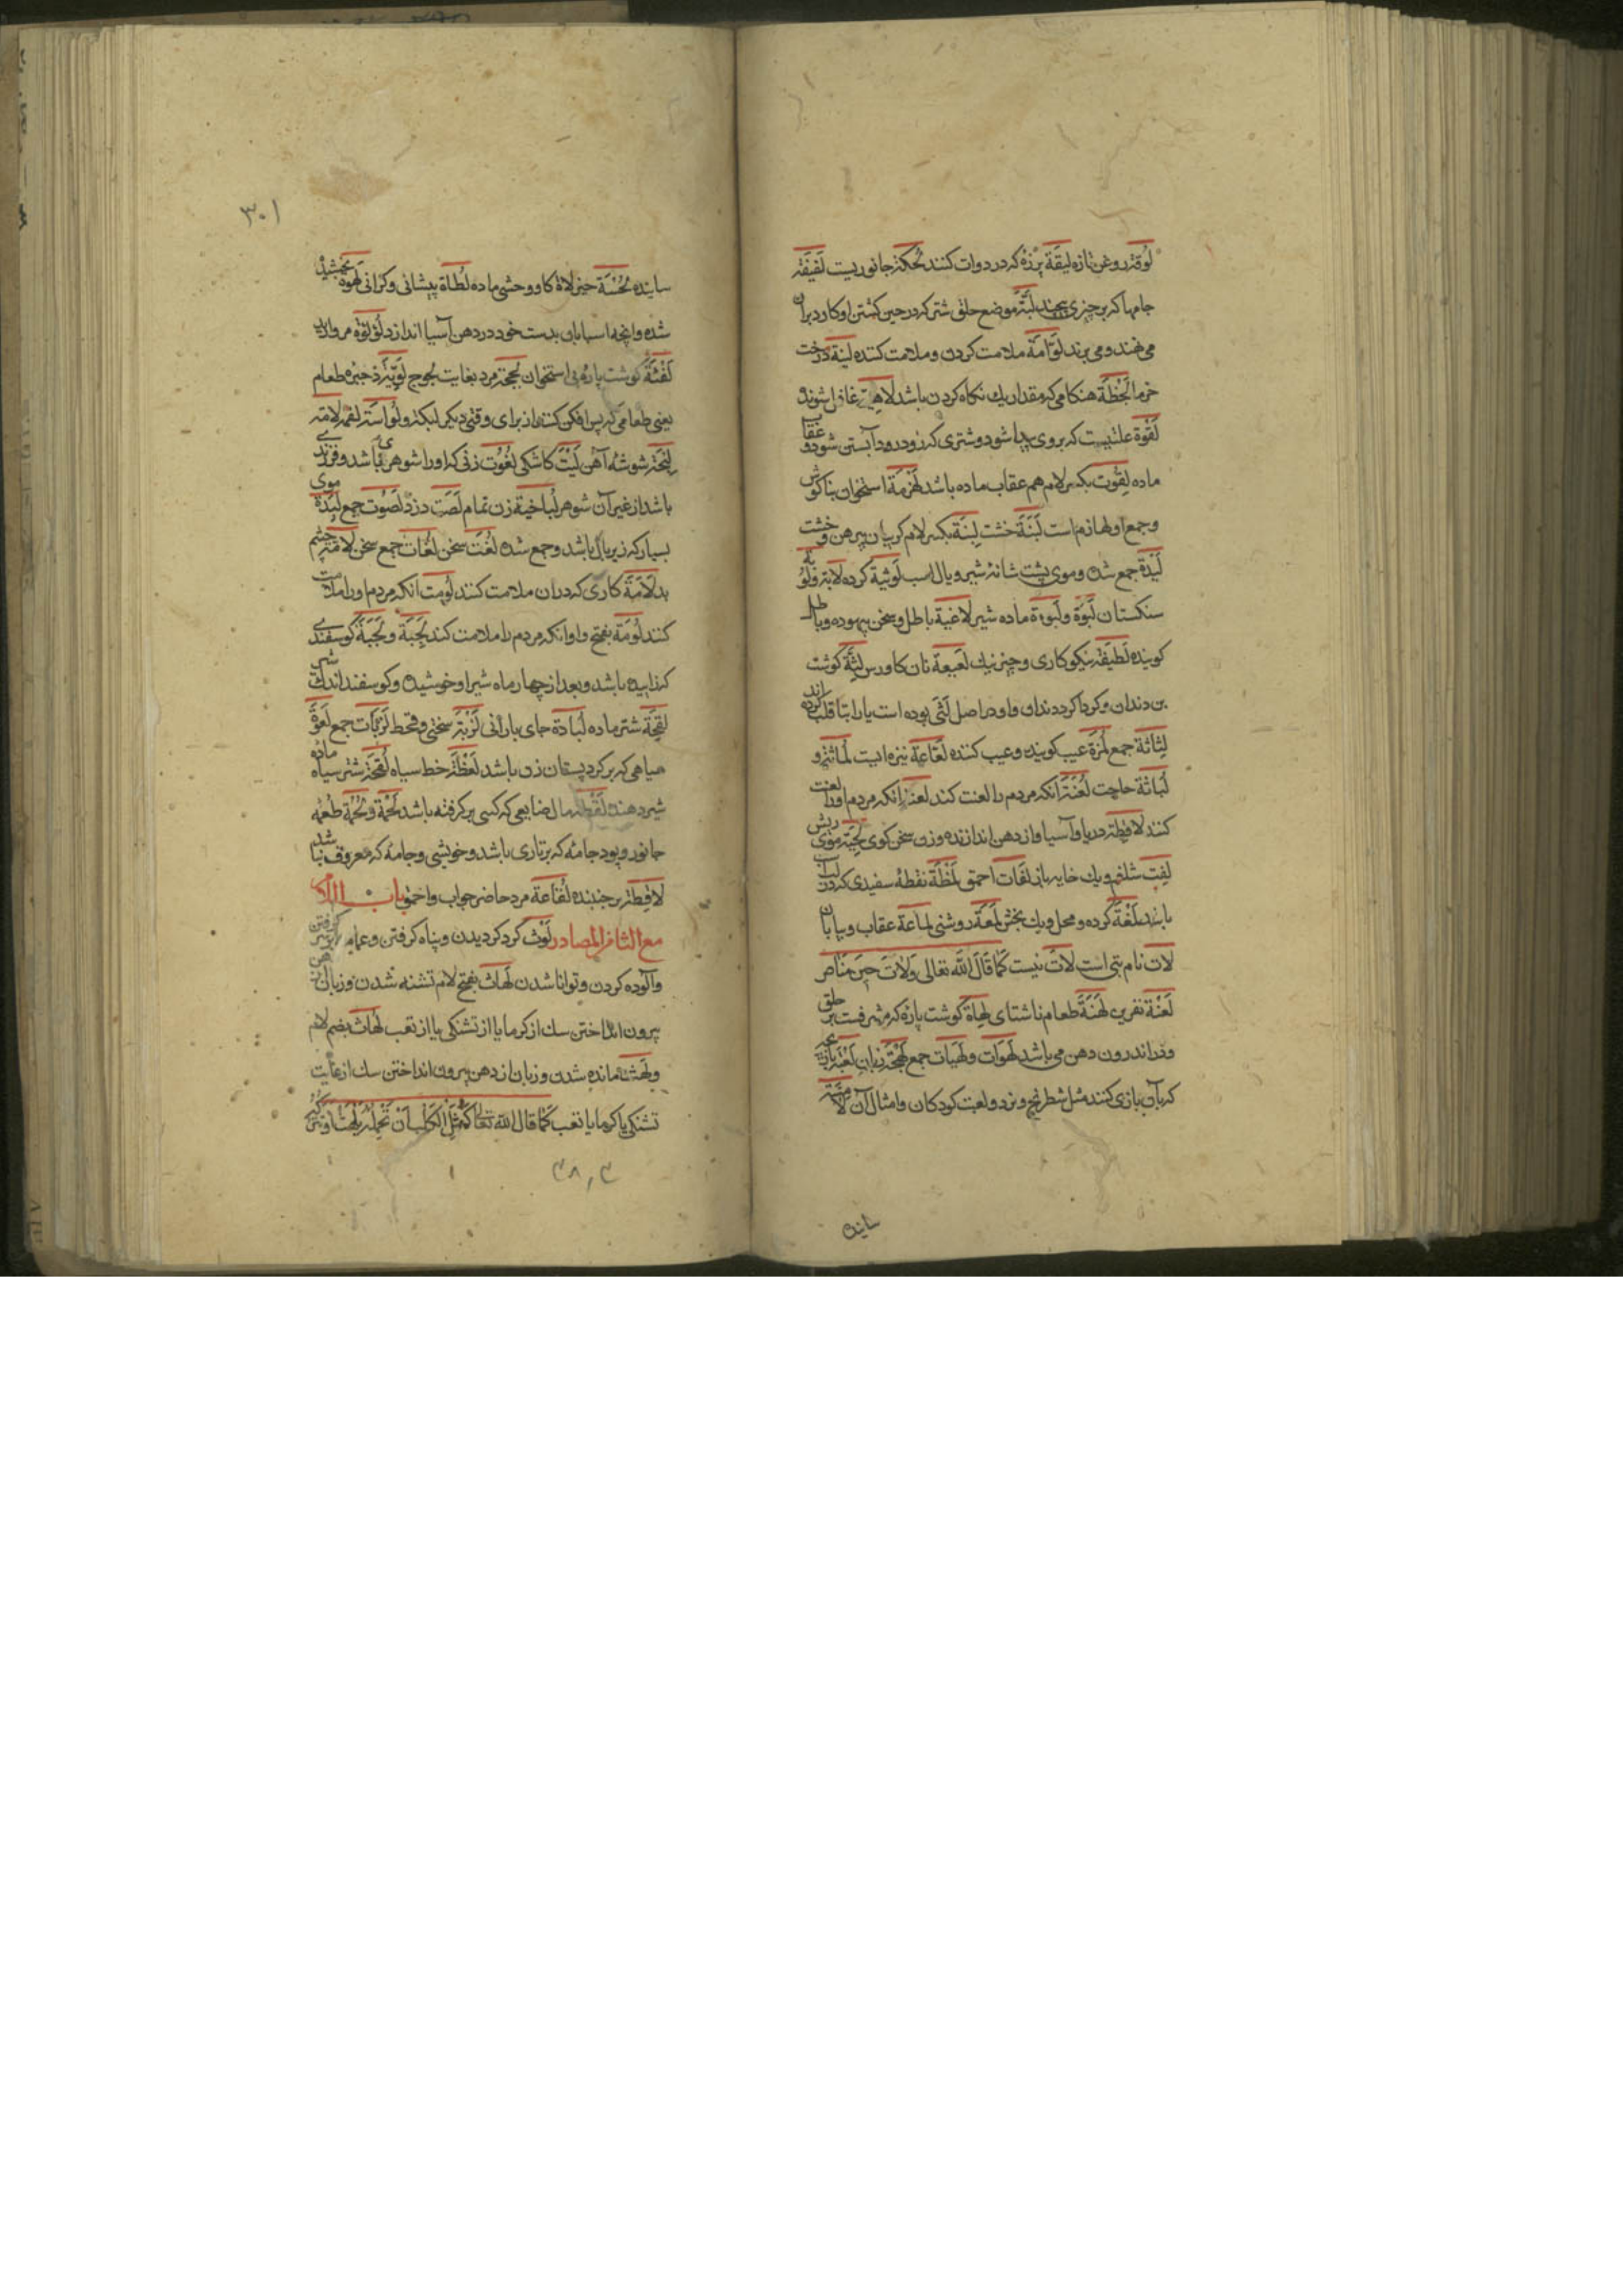 لوقة روغن تازه لیقة پرزه که در دوات کنند لحکة جانوریست لفیفة
جامها که بر چیزی پیچند لبّة موضع حلق شتر که در حین کشتن او کارد بر آن
می نهند و می برند لوّامة ملامت کردن و ملامت کننده لینة درخت
خرما لحظة هنکامی که مقدار یك نکاه کردن باشد لاهیة غافل شونده
لقوة علتیست که بر روی پیدا شود و شتری که زود زود آبستن شود و عقاب
ماده لقوت بکسر لام هم عقاب ماده باشد لهزمة استخوان بناکوش
و جمع او لهازم است لبنة خشت لبنة بکسر لام کریبان پیرهن و خشت
لبدة جمع شده و موی پشت شانه شیر و یال اسب لوثیة کرده لابة و لوبة
سنکستان لبوة و لبوءة ماده شیر لاغیة باطل و سخن بیهوده و باطل
کوینده لطیفة نیکوکاری و چیز نیك لعیعة نان کاورس لثة کوشت
بن دندان و کرداکرد دندان و او در اصل لثی بوده است یا را بتا قلب کرده اند
لثاثة جمع لمزة عیب کوینده و عیب کننده لعّاعة نیزه ایست لماثة و
لباثة حاجت لعنة آنکه مردم را لعنت کند لعنة آنکه مردم او را لعنت
کنند لافظة دریا و آسیا و از دهن اندازنده و زن سخن کوی لحیة موی ریش
لفت شلغم و یك خایه بانی لقات احمق لمظة نقطه سفیدی که در لب
باشد لمعة کرده و محل و یك بخش لمعة روشنی لماعة عقاب و بیابان
لات نام بتی است لات نیست کما قال الله تعالی ولات حین مناص
لعنة نفرین لهنة طعام ناشتای لهاة کوشت پاره که مشرفست بر حلق
و در اندرون دهن می باشد لهوات و لهیات جمع لهجة زبان لعبة بازیچه
که بآن بازی کنند مثل شطرنج و نرد و لعبت کودکان و امثال آن لامسة
ساینده
۳۰۱
ساینده لحسة چیز لاة کاو وحشی ماده لطاة پیشانی و کرانی لهوة بخشیده
شده و آنچه آسیابان بدست خود در دهن آسیا اندازد لؤلؤة مروارید
لفئة کوشت پاره بی استخوان لججة مرد بغایت لجوج لویّة ذخیره طعام
یعنی طعامی که پس افکن کنند از برای وقتی دیکر لبکة و لواسة لقمه لامة
لنجة شوشه آهن لیت کاشکی لغوت زنی که او را شوهری باشد و فرزندی
باشد از غیر آن شوهر لباخیة زن تمام لصت دزد لصوت جمع لبدة موی
بسیار که زیر یال باشد و جمع شده لغت سخن لغات جمع سخن لامة چشم
بد لامة کاری که در ان ملامت کنند لومت آنکه مردم او را ملامت
کنند لومة بفتح واو آنکه مردم را ملامت کند لجبة و لجبة کوسفندی
که زاییده باشد و بعد از چهار ماه شیر او خوشیده و کوسفند اندك شیر
لقحة شتر ماده لبّادة جای بارانی لزبة سختی و قحط لزبات جمع لعوة
سیاهی که بر کرد پستان زن باشد لعظة خط سیاه لقحة شتر سیاه ماده
شیر دهنده لقطة مال ضایعی که کسی بر کرفته باشد لحمة و لحمة طعمه
جانور و پود جامه که بر تاری باشد و خویشی و جامه که معروف نباشد
لاقطة برچیننده لقّاعة مرد حاضر جواب و احمق باب اللام
مع الثا من المصادر لوث کرد کردیدن و پناه کرفتن و عمامه بر سر کرفتن
و آلوده کردن و توانا شدن لهاث بفتح لام تشنه شدن و زبان از دهن
بیرون انداختن سك از کرما یا از تشنکی یا از تعب لهاث بضم لام
و لهث مانده شدن و زبان از دهن بیرون انداختن سك از غایت
تشنکی یا کرما یا تعب کما قال الله تعالی کمثل الکلب ان تحمل علیه یلهث او تترکه
۳۸٫۳ ۱